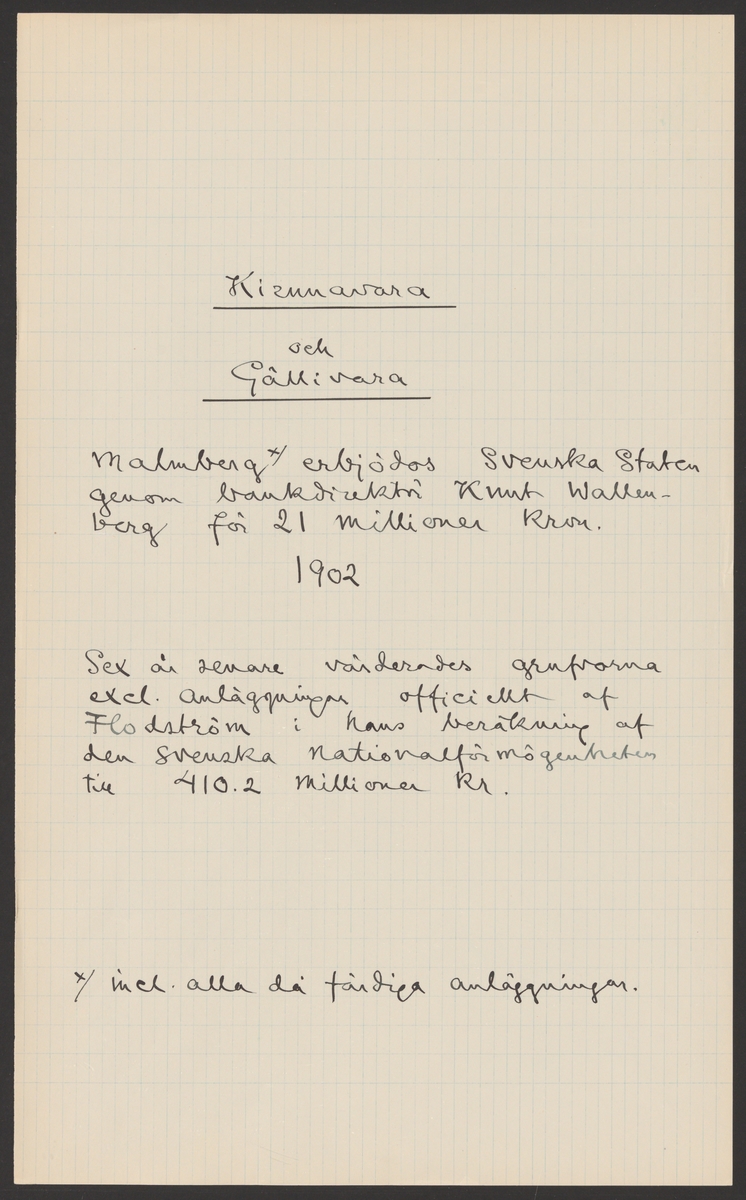 Kirunavara
och
Gällivara
Malmberg x/ erbjödos Svenska Staten
genom bankdirektör Knut Wallen-
berg för 21 millioner kron.
1902
Sex år senare värderades grufvorna
excl. anläggningar officiellt af
Flodström i hans beräkning af
den svenska nationalförmögenheten
till 410.2 millioner kr.
x/ incl. alla då färdiga anläggningar.